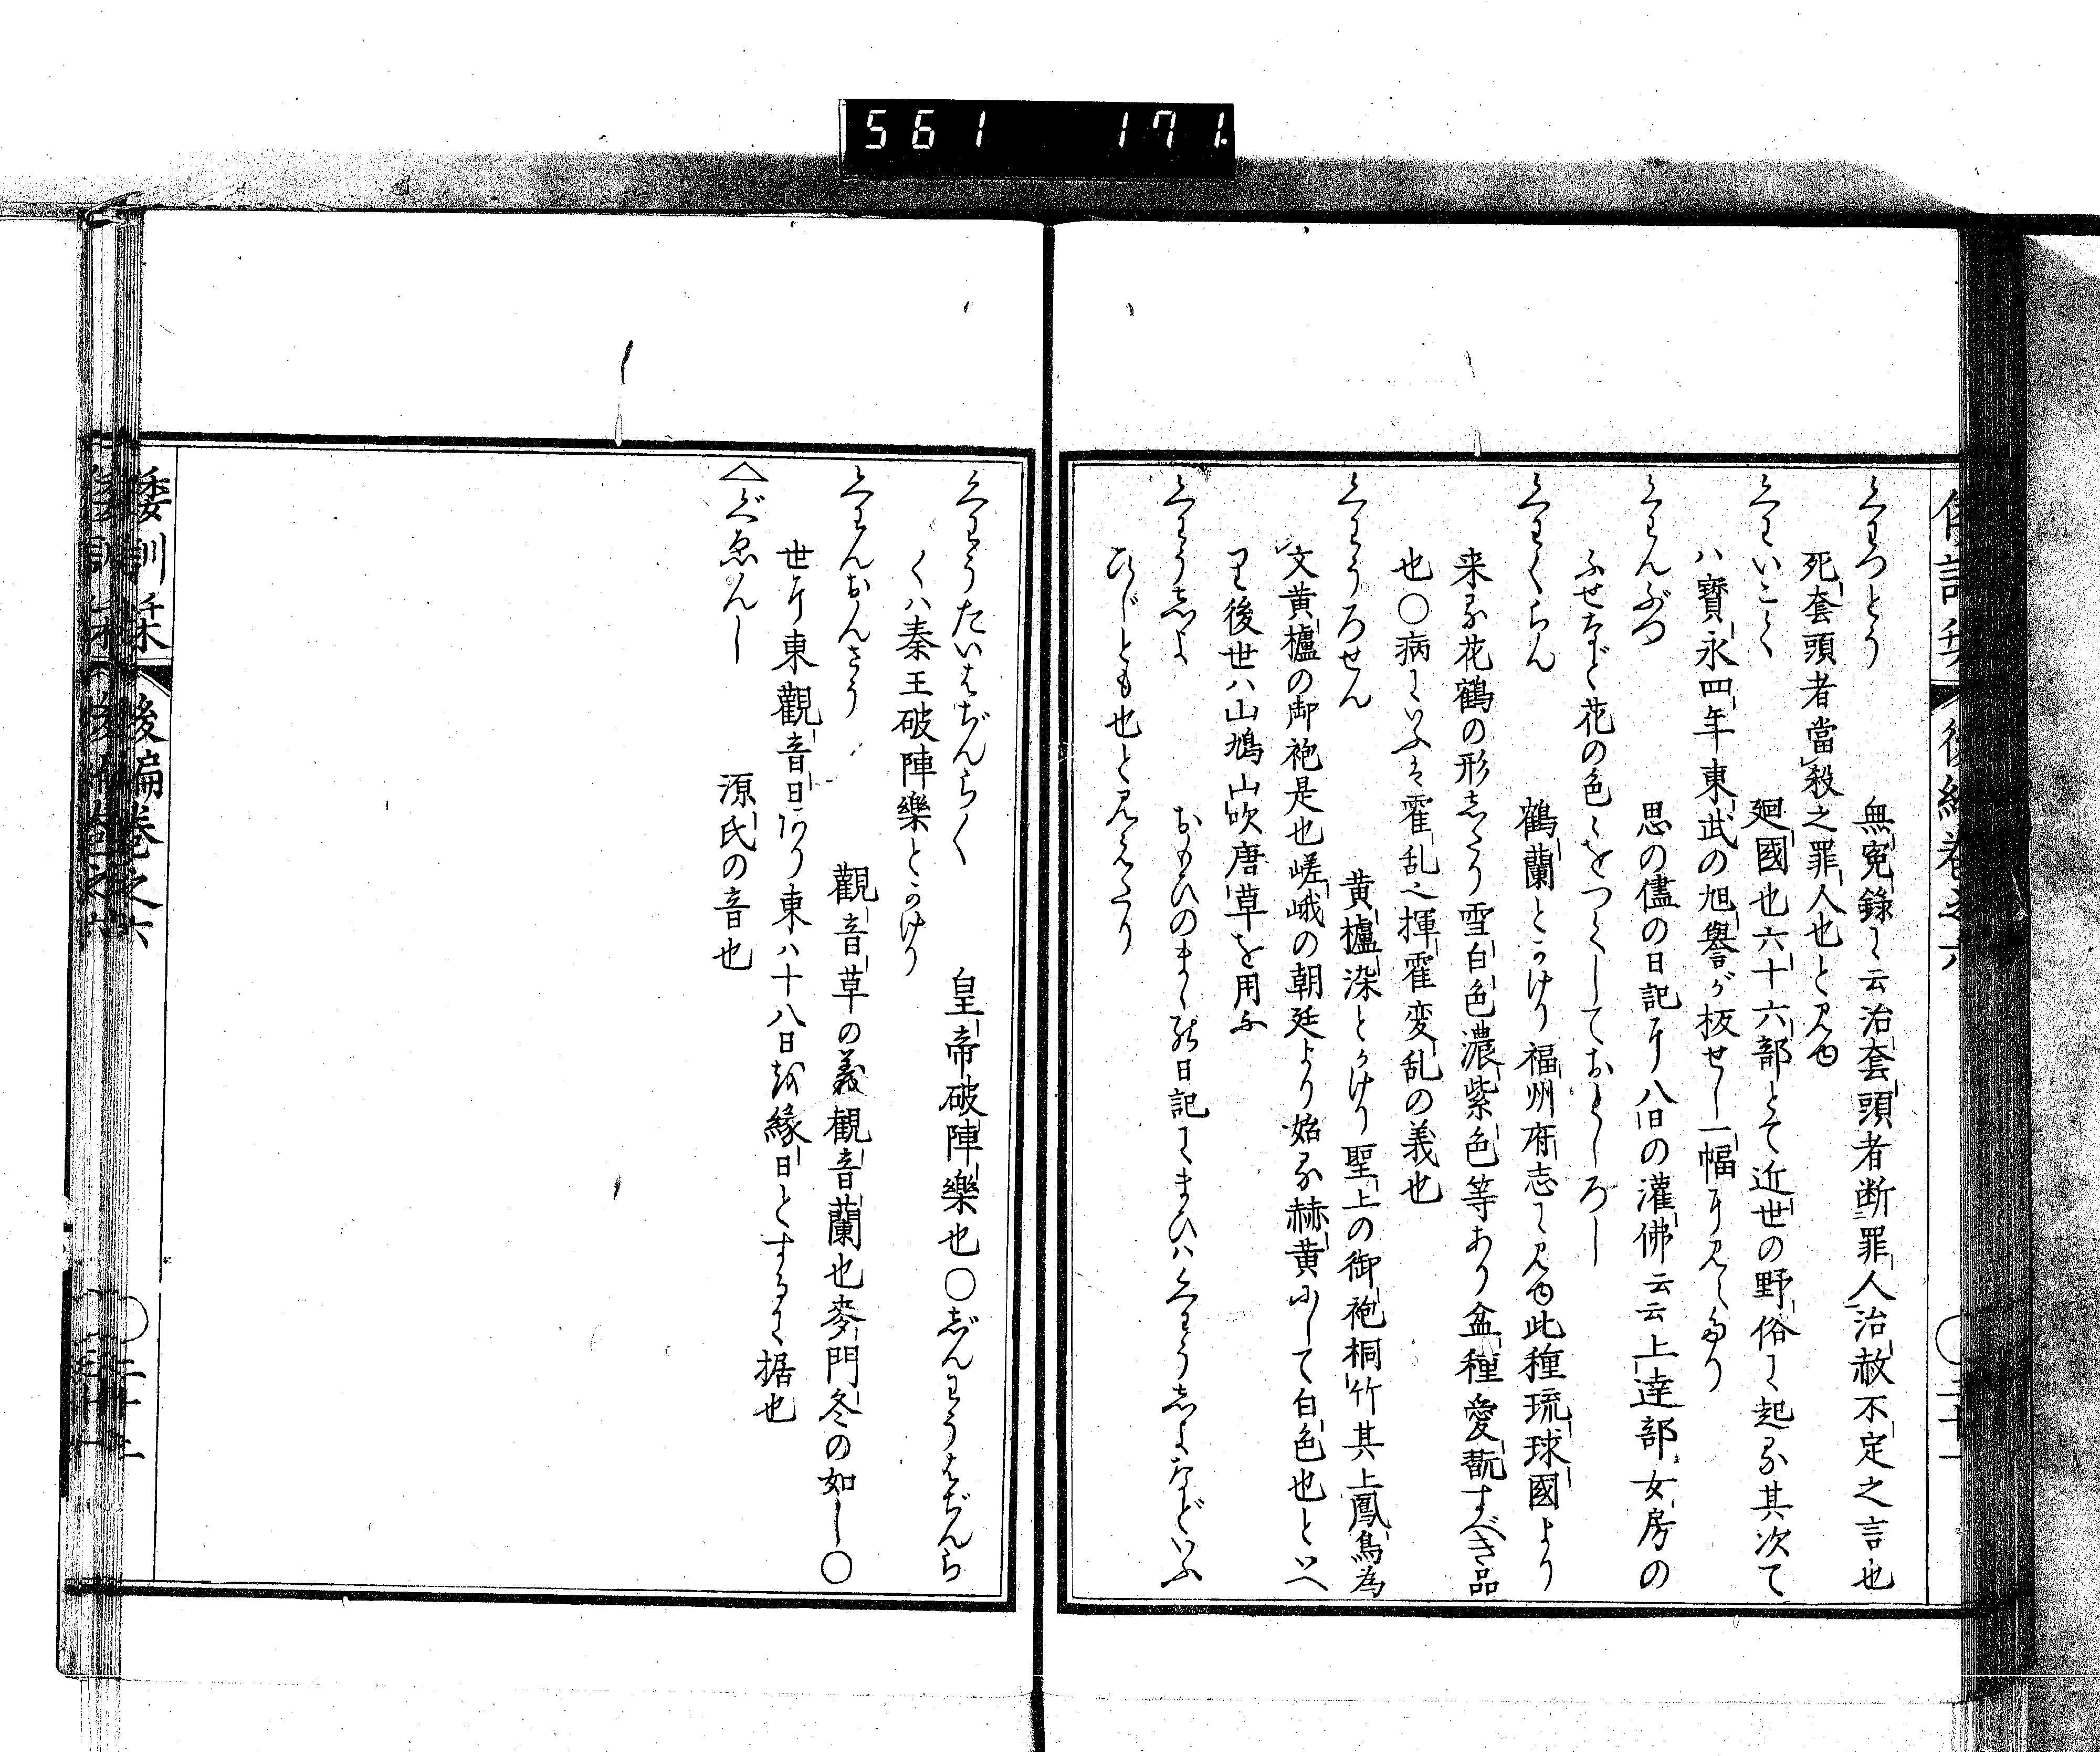 561 171
くわつとう 無寃録に云治套頭者断罪人治赦不定之言也
死套頭者當殺之罪人也と見ゆ
くわいこく 廻國也六十六部とて近世の野俗に起る其次て
ハ寶永四年東武の旭譽が板せし一幅に見えたり
くわんぶつ 思の儘の日記に八日の灌佛云云上達部女房の
ふせなど花の色々をつくしておもしろし
くわくらん 鶴蘭とかけり福州府志に見ゆ此種琉球國より
来る花鶴の形したり雪白色濃紫色等あり盆種愛翫すべき品
也〇病にいふは霍乱也揮霍変乱の義也
くわうろせん 黄櫨染とかけり聖上の御袍桐竹其上鳳鳥為
文黄櫨の御袍是也嵯峨の朝廷より始る赫黄にして白色也といへ
り後世ハ山鳩山吹唐草を用ふ
くわうしよ おもひのまゝの日記にまひハくわうしよなどいふ
ひじとも也と見えたり
くわうたいはぢんらく 皇帝破陣樂也〇じんわうはぢんら
くハ秦王破陣樂とかけり
くわんおんさう 觀音草の義觀音蘭也麥門冬の如し〇
世に東觀音日あり東ハ十八日を緣日とするに据也
ぐゑんじ 源氏の音也
倭訓栞 後編巻之六 〇二十二